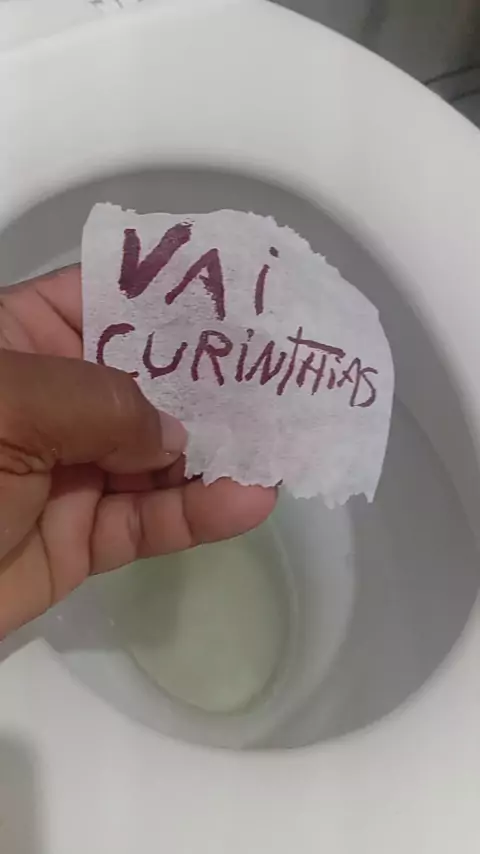 VAi
CURiNTHiAS